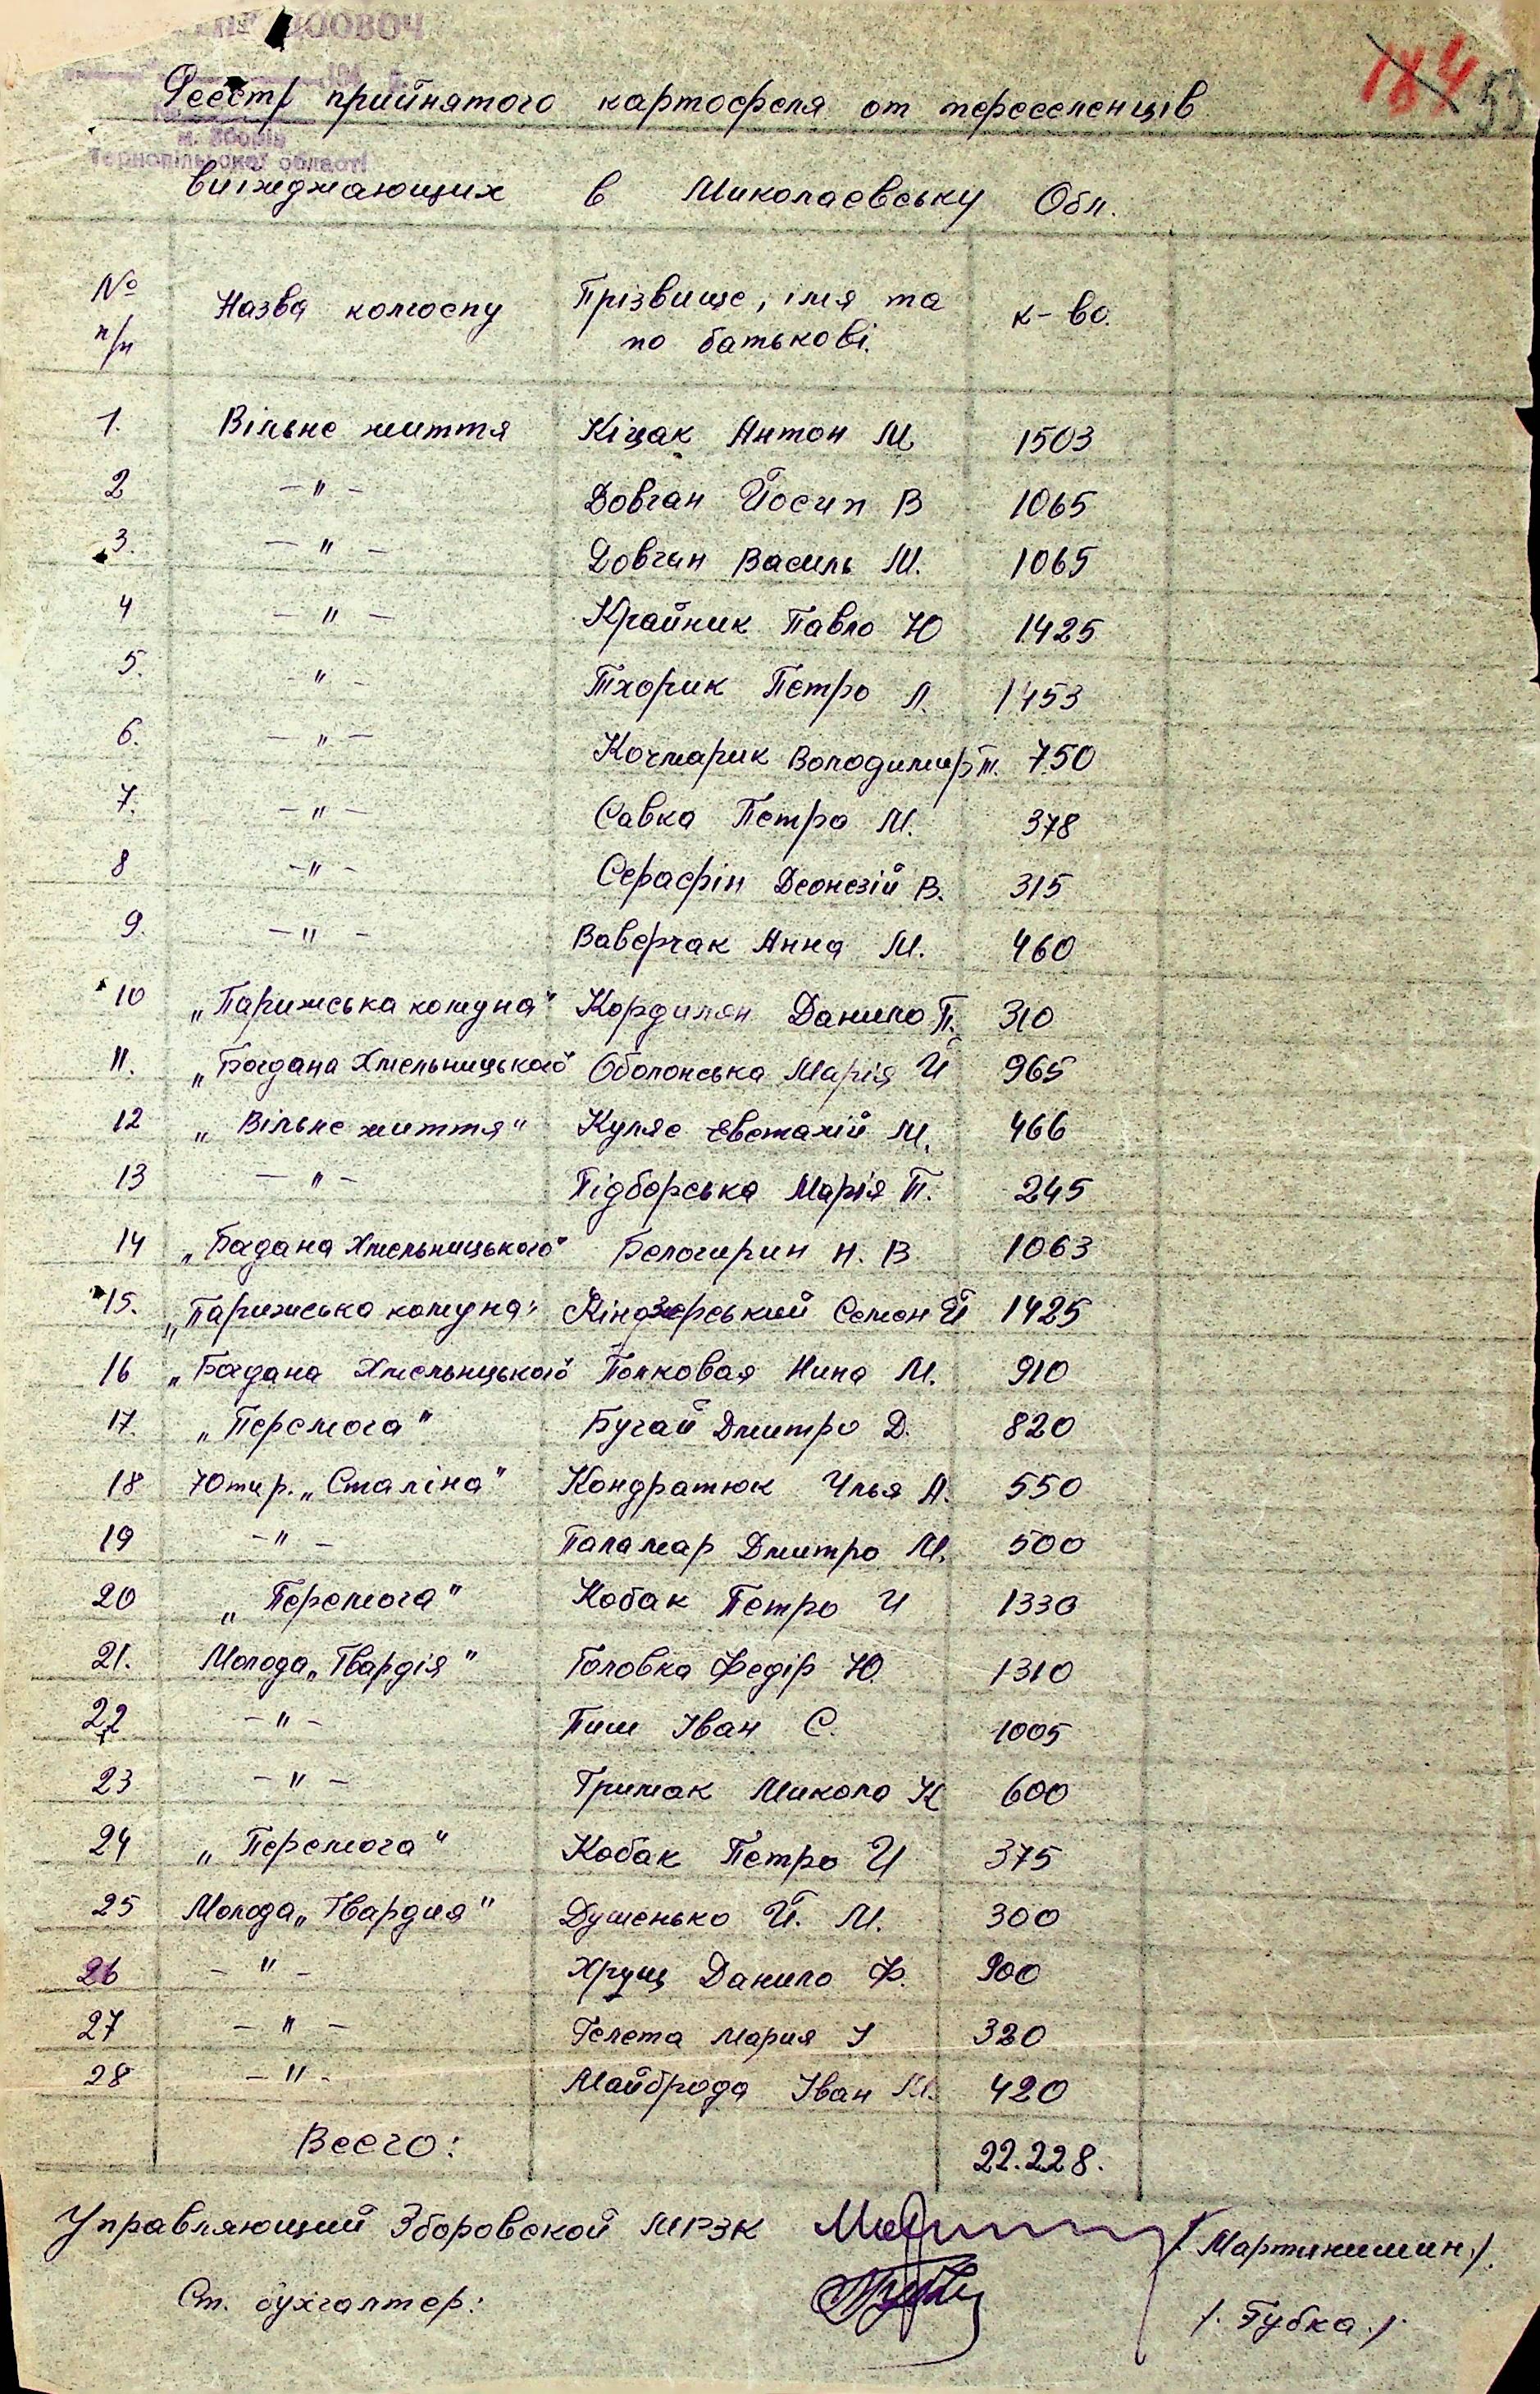 184 55
м. Зборів
Тернопільської області
Реєстр прийнятого картофеля от переселенців
виїжджающих в Миколаєвську Обл.
№ п/п Назва колгоспу Прізвище, імя та по батькові. к-во.
1. Вільне життя Кіцак Антон М 1503
2 — " — Довган Йосип В 1065
3. — " — Довган Василь М. 1065
4 — " — Крайник Павло Ю 1425
5. — " — Тхорик Петро Л. 1453
6. — " — Кочмарик Володимир Т. 750
7. — " — Савка Петро М. 378
8 — " — Серафін Деонезій В. 315
9. — " — Ваверчак Анна М. 460
10 „Парижська комуна" Кордилян Данило П. 310
11. „Богдана Хмельницького" Оболонська Марія Й 965
12 „Вільне життя" Куляс Евстахій М. 466
13 — " — Підборська Марія Т. 245
14 „Богдана Хмельницького" Белогирин Н. В 1063
15. „Парижсько комуна" Кіндзерський Семен Й 1425
16 „Богдана Хмельницького" Полковая Нина М. 910
17. „Перемога" Бугай Дмитро Д. 820
18 Ют пр. „Сталіна" Кондратюк Илья А. 550
19 — " — Паламар Дмитро М. 500
20 „Перемога" Кобак Петро И 1330
21. Молода „Гвардія" Головка Федір Ю. 1310
22 — " — Пиш Іван С. 1005
23 — " — Гримак Микола К 600
24 „Перемога" Кобак Петро И 375
25 Молода „Гвардия" Душенько Й. М. 300
26 — " — Хрущ Данило Ф. 900
27 — " — Гелета Мария І 320
28 — " — Майброда Іван М. 420
Всего: 22.228.
Управляющий Зборовской МРЗК /Мартинишин./.
Ст. бухгалтер: /. Губка ./.